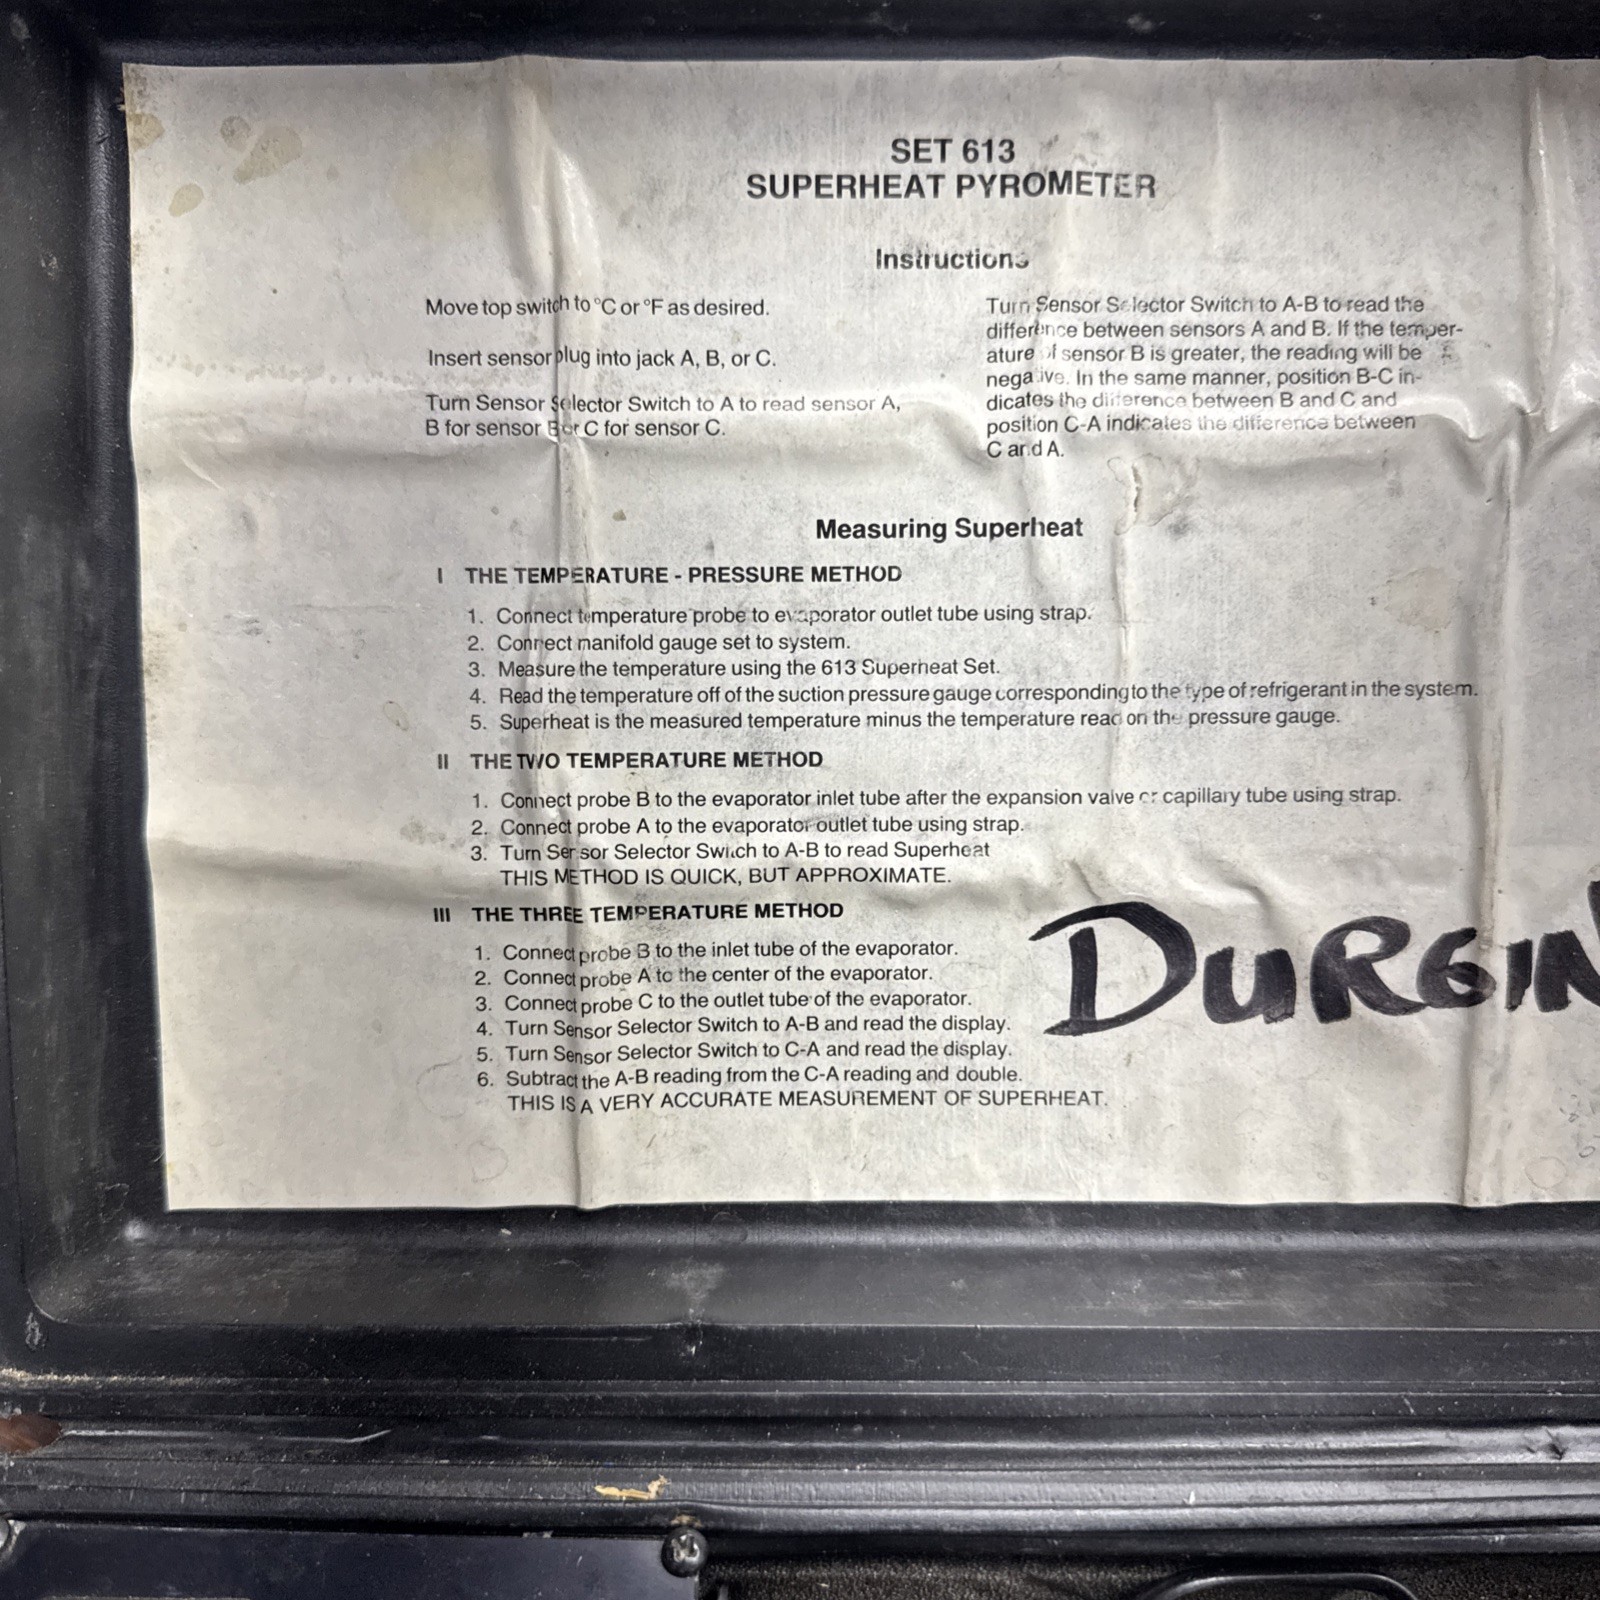 SET 613
SUPERHEAT PYROMETER
Instructions
Move top switch to °C or °F as desired.
Insert sensor plug into jack A, B, or C.
Turn Sensor Selector Switch to A to read sensor A,
B for sensor B or C for sensor C.
Turn Sensor Selector Switch to A-B to read the
difference between sensors A and B. If the temper-
ature of sensor B is greater, the reading will be
negative. In the same manner, position B-C in-
dicates the difference between B and C and
position C-A indicates the difference between
C and A.
Measuring Superheat
I THE TEMPERATURE - PRESSURE METHOD
1. Connect temperature probe to evaporator outlet tube using strap.
2. Connect manifold gauge set to system.
3. Measure the temperature using the 613 Superheat Set.
4. Read the temperature off of the suction pressure gauge corresponding to the type of refrigerant in the system.
5. Superheat is the measured temperature minus the temperature read on the pressure gauge.
II THE TWO TEMPERATURE METHOD
1. Connect probe B to the evaporator inlet tube after the expansion valve or capillary tube using strap.
2. Connect probe A to the evaporator outlet tube using strap.
3. Turn Sensor Selector Switch to A-B to read Superheat
THIS METHOD IS QUICK, BUT APPROXIMATE.
III THE THREE TEMPERATURE METHOD
1. Connect probe B to the inlet tube of the evaporator.
2. Connect probe A to the center of the evaporator.
3. Connect probe C to the outlet tube of the evaporator.
4. Turn Sensor Selector Switch to A-B and read the display.
5. Turn Sensor Selector Switch to C-A and read the display.
6. Subtract the A-B reading from the C-A reading and double.
THIS IS A VERY ACCURATE MEASUREMENT OF SUPERHEAT.
DURGIN